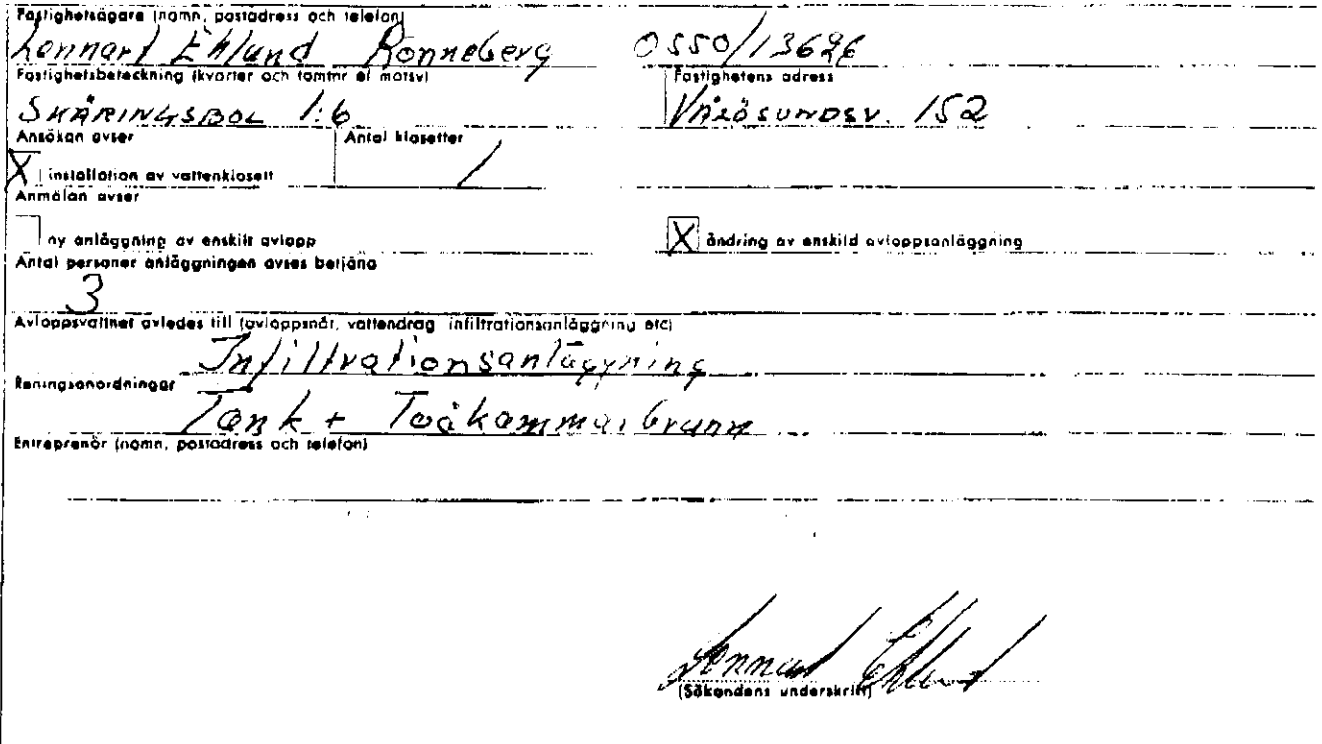 Fastighetsägare (namn, postadress och telefon)
Lennart Ehlund Ronneberg 0550/13626
Fastighetsbeteckning (kvarter och tomtnr el motsv) Fastighetens adress
SKÄRINGSBOL 1:6 VÅLÖSUNDSV. 152
Ansökan avser Antal klosetter
X installation av vattenklosett 1
Anmälan avser
ny anläggning av enskilt avlopp X ändring av enskild avloppsanläggning
Antal personer anläggningen avses betjäna
3
Avloppsvattnet avledes till (avloppsnät, vattendrag infiltrationsanläggning etc)
Infiltrationsanläggning
Reningsanordningar
Tank + Tvåkammarbrunn
Entreprenör (namn, postadress och telefon)
Lennart Ehlund
(Sökandens underskrift)